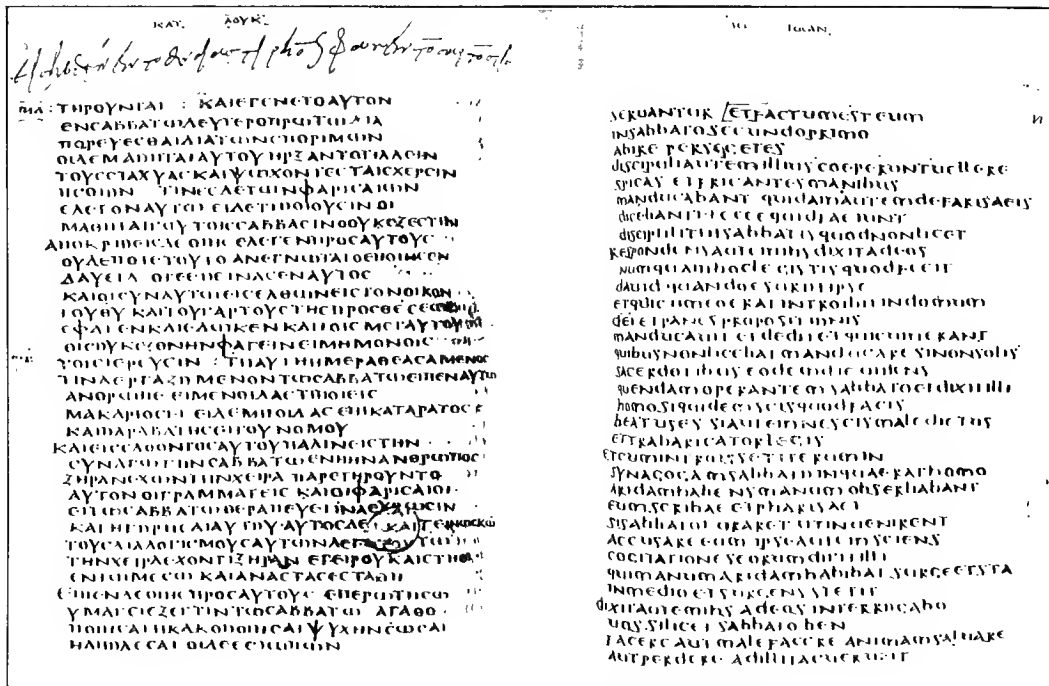 ΚΑΤ ΛΟΥΚ
ΤΗΡΟΥΝΤΑΙ : ΚΑΙΕΓΕΝΕΤΟΑΥΤΟΝ
ΕΝΣΑΒΒΑΤΩΔΕΥΤΕΡΟΠΡΩΤΩΔΙΑ
ΠΟΡΕΥΕΣΘΑΙΔΙΑΤΩΝΣΠΟΡΙΜΩΝ
ΟΙΔΕΜΑΘΗΤΑΙΑΥΤΟΥΗΡΞΑΝΤΟΤΙΛΛΕΙΝ
ΤΟΥΣΣΤΑΧΥΑΣΚΑΙΨΩΧΟΝΤΕΣΤΑΙΣΧΕΡΣΙΝ
ΗΣΘΙΟΝ ΤΙΝΕΣΔΕΤΩΝΦΑΡΙΣΑΙΩΝ
ΕΛΕΓΟΝΑΥΤΩ ΕΙΔΕΤΙΠΟΙΟΥΣΙΝΟΙ
ΜΑΘΗΤΑΙΣΟΥΤΟΙΣΣΑΒΒΑΣΙΝΟΟΥΚΕΞΕΣΤΙΝ
ΑΠΟΚΡΙΘΕΙΣΔΕΟΙΗΣ ΕΛΕΓΕΝΠΡΟΣΑΥΤΟΥΣ
ΟΥΔΕΠΟΤΕΤΟΥΤΟΑΝΕΓΝΩΤΑΙΟΕΠΟΙΗΣΕΝ
ΔΑΥΕΙΔ ΟΤΕΕΠΕΙΝΑΣΕΝΑΥΤΟΣ
ΚΑΙΟΙΣΥΝΑΥΤΩΕΙΣΕΛΘΩΝΕΙΣΤΟΝΟΙΚΟΝ
ΤΟΥΘΥ ΚΑΙΤΟΥΣΑΡΤΟΥΣΤΗΣΠΡΟΣΘΕΣΕΩΣ
ΕΦΑΓΕΝΚΑΙΕΔΩΚΕΝΚΑΙΤΟΙΣΜΕΤΑΥΤΟΥ
ΟΙΣΟΥΚΕΞΟΝΗΝΦΑΓΕΙΝΕΙΜΗΜΟΝΟΙΣ
ΤΟΙΣΙΕΡΕΥΣΙΝ : ΤΗΑΥΤΗΗΜΕΡΑΘΕΑΣΑΜΕΝΟΣ
ΤΙΝΑΕΡΓΑΖΟΜΕΝΟΝΤΩΣΑΒΒΑΤΩΕΙΠΕΝΑΥΤΩ
ΑΝΘΡΩΠΕ ΕΙΜΕΝΟΙΔΑΣΤΙΠΟΙΕΙΣ
ΜΑΚΑΡΙΟΣΕΙ ΕΙΔΕΜΗΟΙΔΑΣΕΠΙΚΑΤΑΡΑΤΟΣ
ΚΑΙΠΑΡΑΒΑΤΗΣΕΙΤΟΥΝΟΜΟΥ
ΚΑΙΕΙΣΕΛΘΟΝΤΟΣΑΥΤΟΥΠΑΛΙΝΕΙΣΤΗΝ
ΣΥΝΑΓΩΓΗΝΣΑΒΒΑΤΩΕΝΗΗΝΑΝΘΡΩΠΟΣ
ΞΗΡΑΝΕΧΩΝΤΗΝΧΕΙΡΑ ΠΑΡΕΤΗΡΟΥΝΤΟ
ΑΥΤΟΝΟΙΓΡΑΜΜΑΤΕΙΣ ΚΑΙΟΙΦΑΡΙΣΑΙΟΙ
ΕΙΤΩΣΑΒΒΑΤΩΘΕΡΑΠΕΥΕΙΙΝΑΕΥΡΩΣΙΝ
ΚΑΤΗΓΟΡΗΣΑΙΑΥΤΟΥ ΑΥΤΟΣΔΕ ΓΕΙΝΩΣΚΩ
ΤΟΥΣΔΙΑΛΟΓΙΣΜΟΥΣΑΥΤΩΝΛΕΓΕΙΤΩ
ΤΗΝΧΕΙΡΑΕΧΟΝΤΙΞΗΡΑΝ ΕΓΕΙΡΟΥΚΑΙΣΤΗΘΙ
ΕΝΤΩΜΕΣΩ ΚΑΙΑΝΑΣΤΑΣΕΣΤΑΘΗ
ΕΙΠΕΝΔΕΟΙΗΣΠΡΟΣΑΥΤΟΥΣ ΕΠΕΡΩΤΗΣΩ
ΥΜΑΣΕΙΕΞΕΣΤΙΝΤΩΣΑΒΒΑΤΩ ΑΓΑΘΟ
ΠΟΙΗΣΑΙΗΚΑΚΟΠΟΙΗΣΑΙΨΥΧΗΝΣΩΣΑΙ
ΗΑΠΟΛΕΣΑΙ ΟΙΔΕΕΣΙΩΠΩΝ
IOHAN
SERUANTUR ETFACTUMESTEUM
INSABBATOSECUNDOPRIMO
ABIRE PERSEGETES
DISCIPULIAUTEMILLIUS COEPERUNTUELLERE
SPICAS ETFRICANTESMANIBUS
MANDUCABANT QUIDAMAUTEMDEFARISAEIS
DICEBANTEI ECCEQUIDFACIUNT
DISCIPULITUISABBATISQUODNONLICET
RESPONDENSAUTEMIHSDIXITADEOS
NUMQUAMHOCLEGISTISQUODFECIT
DAUID QUANDOESURIITIPSE
ETQUICUMEOERANTINTROIBITINDOMUM
DEI ETPANESPROPOSITIONIS
MANDUCAUIT ETDEDITETQUICUMERANT
QUIBUSNONLICEBATMANDUCARE SINONSOLIS
SACERDOTIBUS EODEMDIEUIDENS
QUENDAMOPERANTEMSABBATOETDIXITILLI
HOMO SIQUIDEMSCISQUODFACIS
BEATUSES SIAUTEMNESCISMALEDICTUS
ETTRABARICATORLEGIS
ETCUMINTROISSETITERUMIN
SYNAGOGAMSABBATOINQUAERATHOMO
ARIDAMHABENSMANUM OBSERBABANT
EUMSCRIBAE ETPHARISAEI
SISABBATOCURARET UTINUENIRENT
ACCUSAREEUM IPSEAUTEMSCIENS
COGITATIONESEORUMDICITILLI
QUIMANUMARIDAMHABEBAT SURGEETSTA
INMEDIO ETSURGENSSTETIT
DIXITAUTEMIHS ADEOS INTERROGABO
UOS SILICET SABBATO BEN
FACERE AUTMALEFACERE ANIMAMSALUARE
AUTPERDERE ADILLITACUERUNT